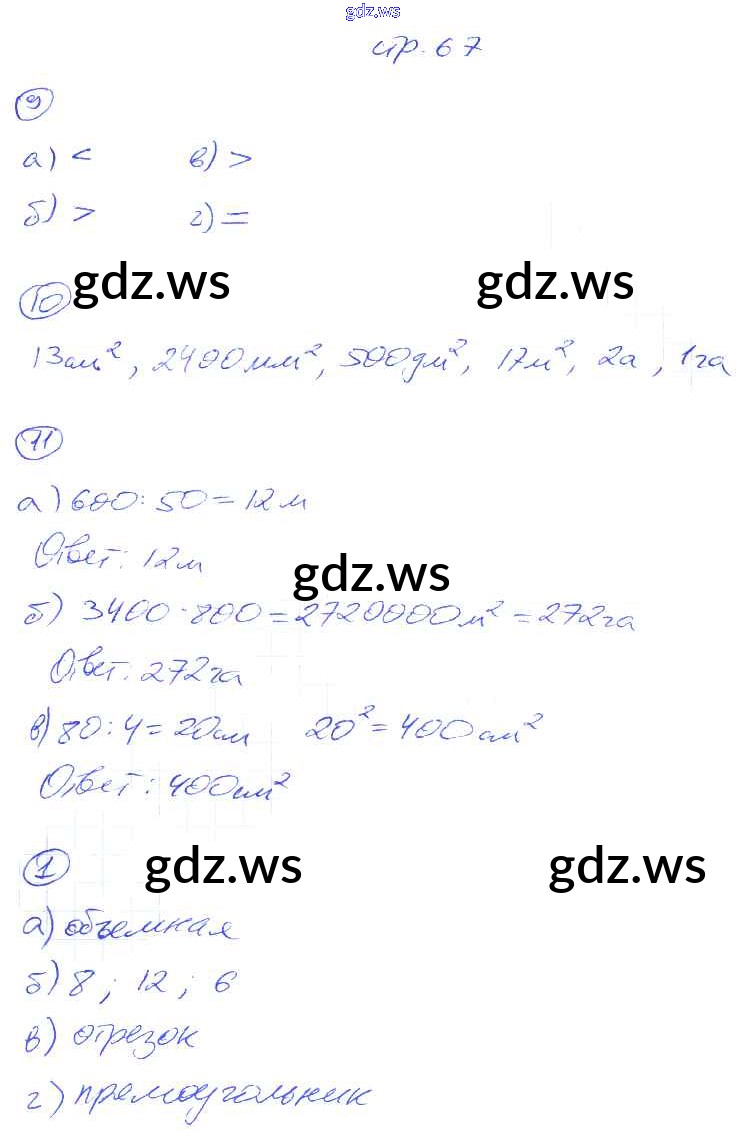 gdz.ws
стр. 67
9
а) < в) >
б) > г) =
gdz.ws gdz.ws
10
13см², 2400мм², 500дм², 17м², 2а, 1га
11
а) 600:50=12м
Ответ: 12м
gdz.ws
б) 3400·800=2720000м²=272га
Ответ: 272га
в) 80:4=20см 20²=400см²
Ответ: 400см²
1
gdz.ws gdz.ws
а) объемная
б) 8; 12; 6
в) отрезок
г) прямоугольник